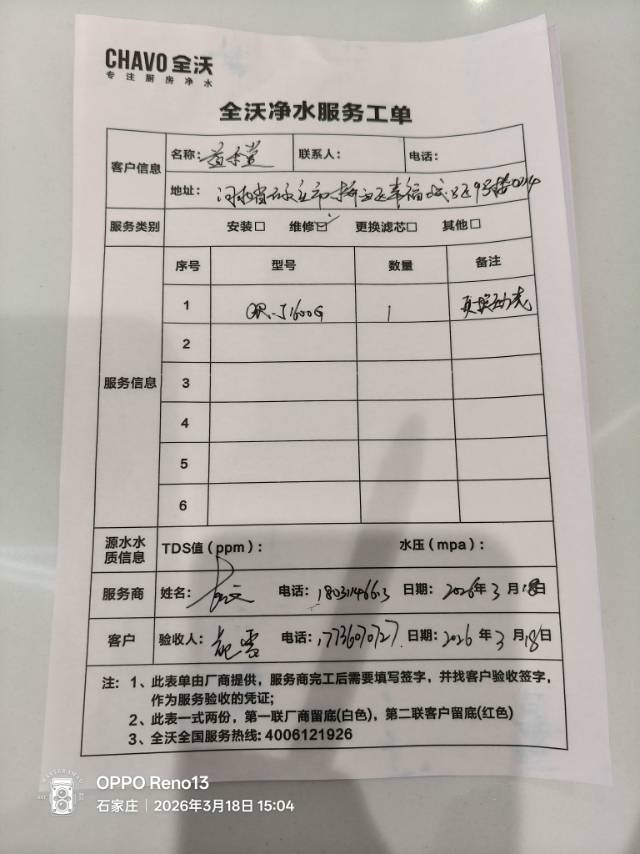 CHAVO 全沃
专注厨房净水
全沃净水服务工单
客户信息 名称： 联系人： 电话：
地址：河北省石家庄市 幸福城
服务类别 安装□ 维修☑ 更换滤芯□ 其他□
服务信息 序号 型号 数量 备注
1 1600G 1
2
3
4
5
6
源水水质信息 TDS值（ppm）： 水压（mpa）：
服务商 姓名： 电话： 日期：2026年3月18日
客户 验收人： 电话：17736070727 日期：2026年3月18日
注：1、此表单由厂商提供，服务商完工后需要填写签字，并找客户验收签字，
作为服务验收的凭证；
2、此表一式两份，第一联厂商留底(白色)，第二联客户留底(红色)
3、全沃全国服务热线: 4006121926
OPPO Reno13
石家庄｜2026年3月18日 15:04